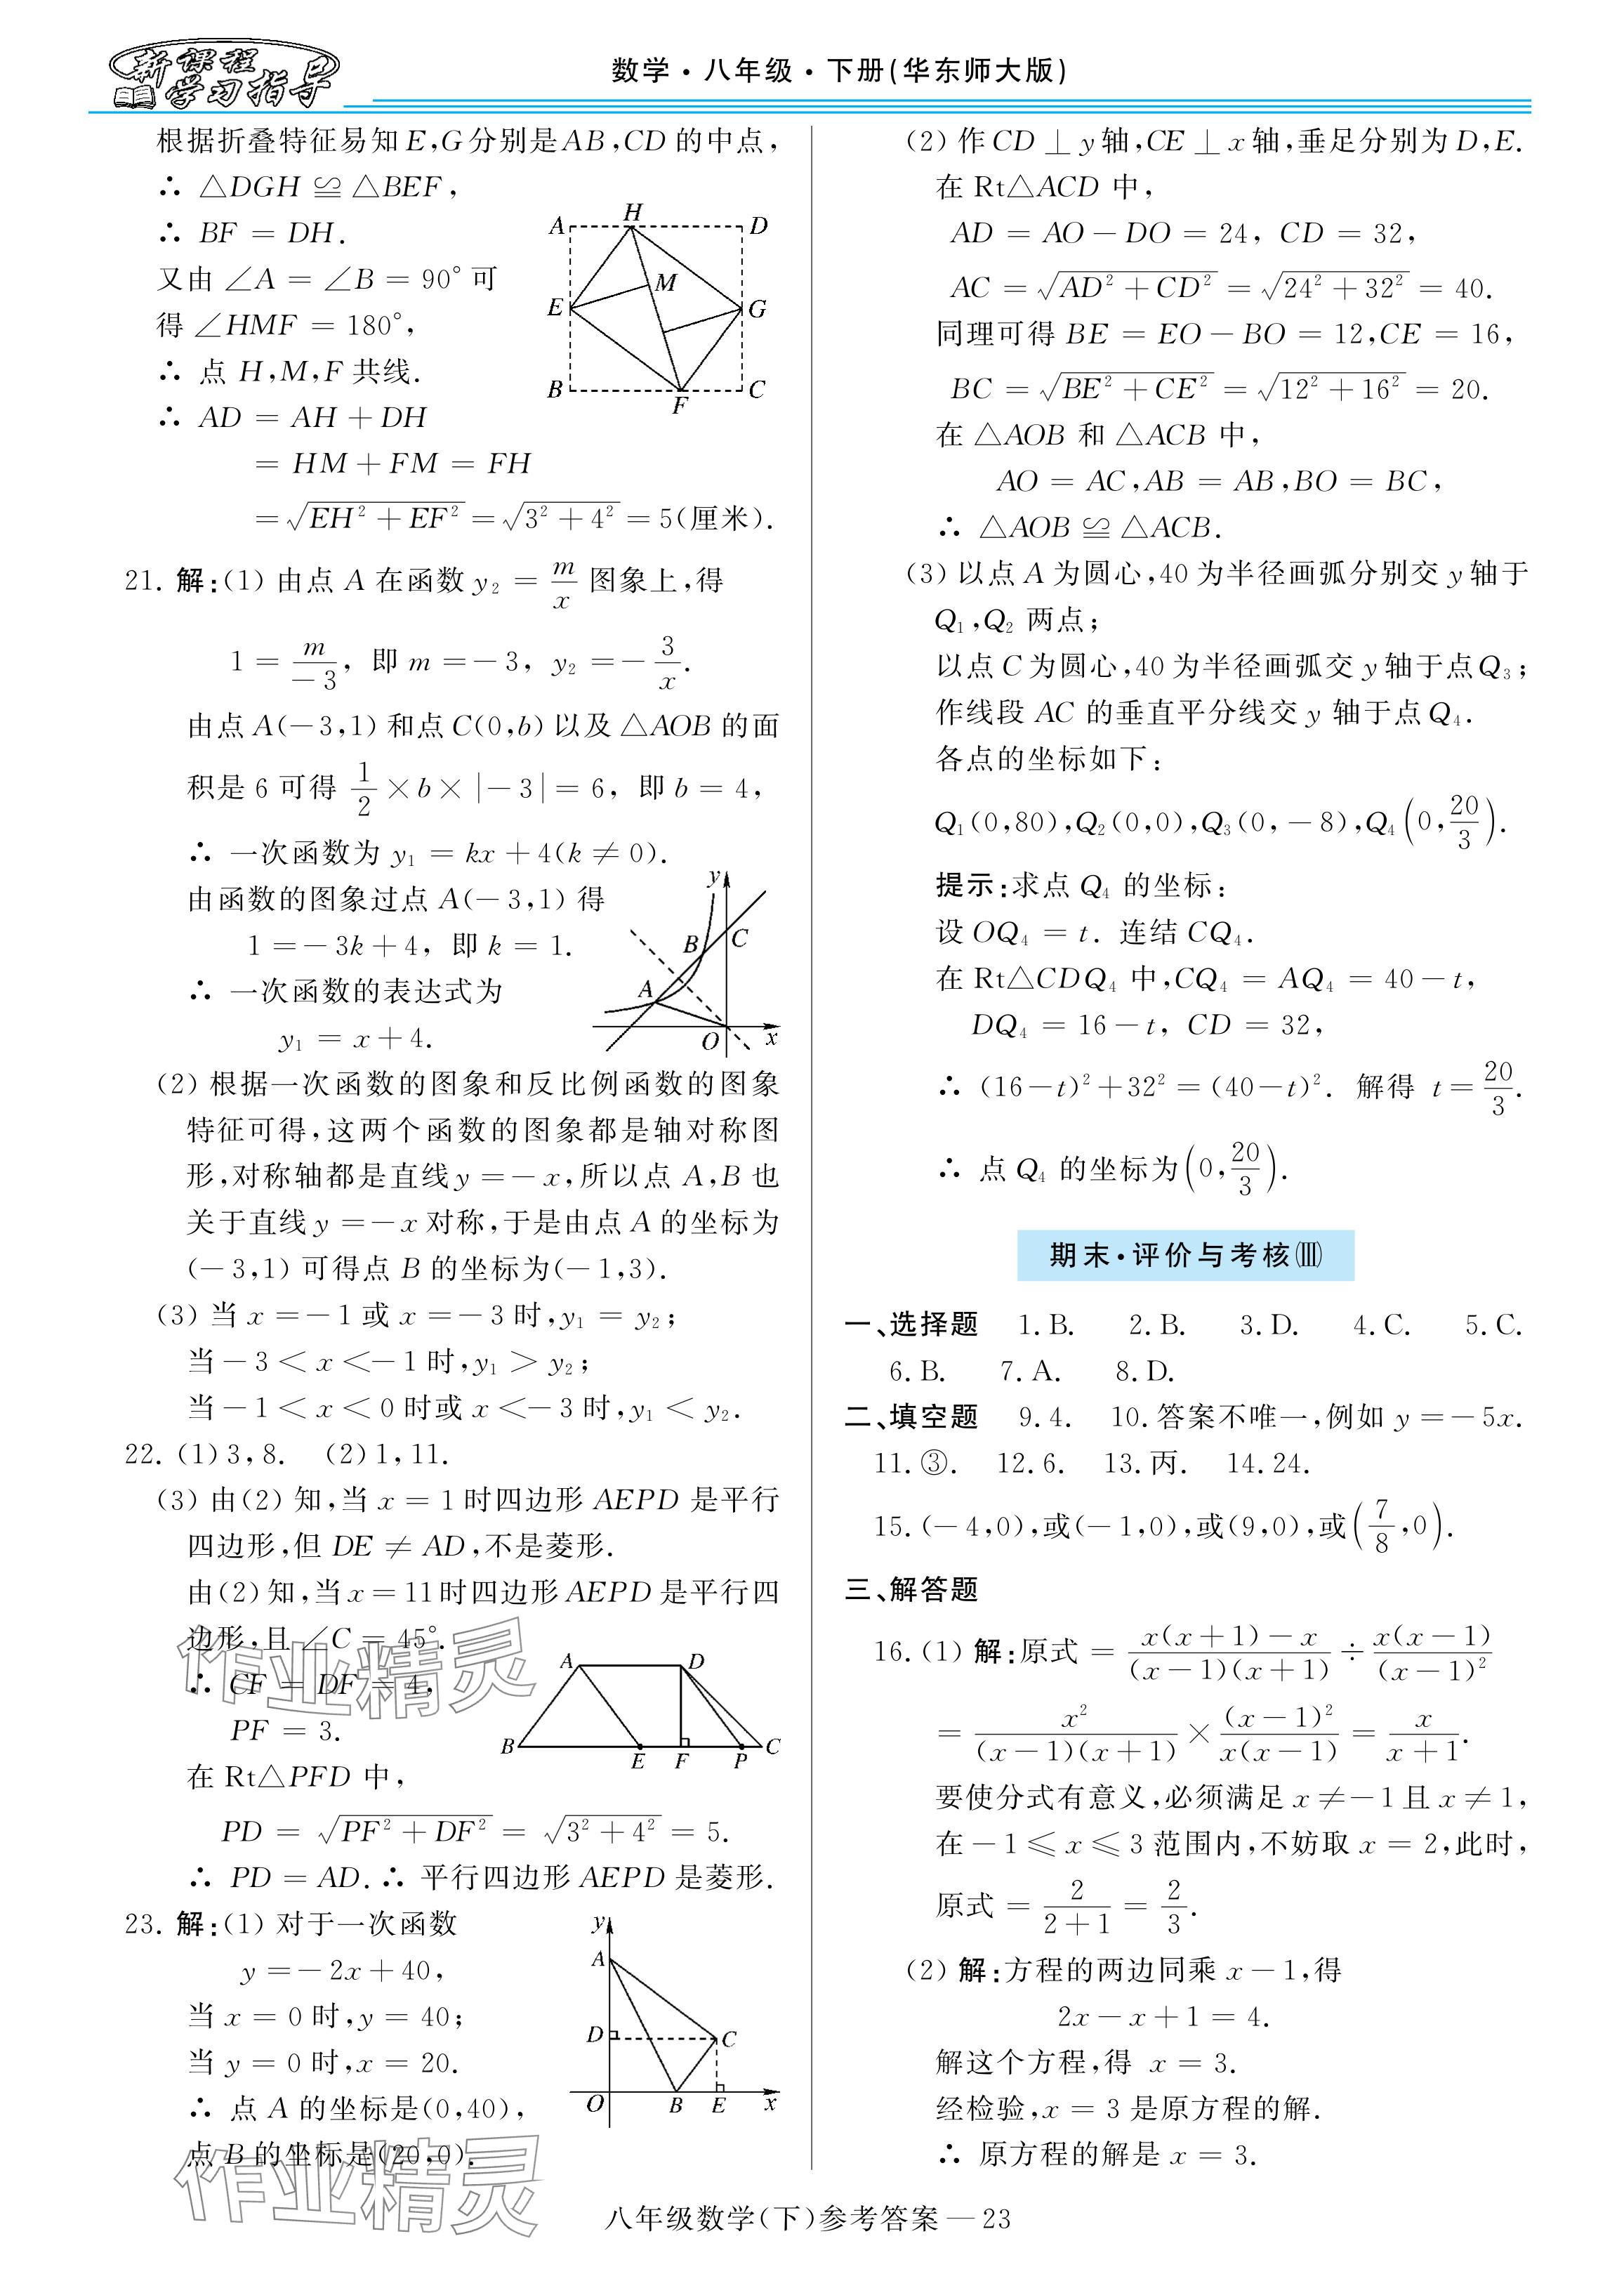 新课程
学习指导
数学·八年级·下册(华东师大版)
根据折叠特征易知E,G分别是AB,CD的中点,
∴ △DGH ≌ △BEF,
∴ BF = DH.
又由 ∠A = ∠B = 90° 可
得 ∠HMF = 180°,
∴ 点 H,M,F 共线.
∴ AD = AH + DH
= HM + FM = FH
= √(EH² + EF²) = √(3² + 4²) = 5(厘米).
A H D
M
E G
B F C
21. 解:(1) 由点 A 在函数 y₂ = m/x 图象上,得
1 = m/(-3), 即 m = -3, y₂ = -3/x.
由点 A(-3,1) 和点 C(0,b) 以及 △AOB 的面
积是 6 可得 1/2 × b × |-3| = 6, 即 b = 4,
∴ 一次函数为 y₁ = kx + 4(k ≠ 0).
由函数的图象过点 A(-3,1) 得
1 = -3k + 4, 即 k = 1.
∴ 一次函数的表达式为
y₁ = x + 4.
y
B C
A
O x
(2) 根据一次函数的图象和反比例函数的图象
特征可得,这两个函数的图象都是轴对称图
形,对称轴都是直线 y = -x,所以点 A,B 也
关于直线 y = -x 对称,于是由点 A 的坐标为
(-3,1) 可得点 B 的坐标为(-1,3).
(3) 当 x = -1 或 x = -3 时,y₁ = y₂;
当 -3 < x < -1 时,y₁ > y₂;
当 -1 < x < 0 时或 x < -3 时,y₁ < y₂.
22. (1) 3, 8. (2) 1, 11.
(3) 由(2) 知,当 x = 1 时四边形 AEPD 是平行
四边形,但 DE ≠ AD,不是菱形.
由(2) 知,当 x = 11 时四边形 AEPD 是平行四
边形,且 ∠C = 45°.
∴ CF = DF = 4,
PF = 3.
在 Rt△PFD 中,
PD = √(PF² + DF²) = √(3² + 4²) = 5.
∴ PD = AD. ∴ 平行四边形 AEPD 是菱形.
A D
B E F P C
作业精灵
23. 解:(1) 对于一次函数
y = -2x + 40,
当 x = 0 时,y = 40;
当 y = 0 时,x = 20.
∴ 点 A 的坐标是(0,40),
点 B 的坐标是(20,0).
y
A
D C
O B E x
作业精灵
(2) 作 CD ⊥ y 轴,CE ⊥ x 轴,垂足分别为 D,E.
在 Rt△ACD 中,
AD = AO - DO = 24, CD = 32,
AC = √(AD² + CD²) = √(24² + 32²) = 40.
同理可得 BE = EO - BO = 12,CE = 16,
BC = √(BE² + CE²) = √(12² + 16²) = 20.
在 △AOB 和 △ACB 中,
AO = AC,AB = AB,BO = BC,
∴ △AOB ≌ △ACB.
(3) 以点 A 为圆心,40 为半径画弧分别交 y 轴于
Q₁,Q₂ 两点;
以点 C 为圆心,40 为半径画弧交 y 轴于点 Q₃;
作线段 AC 的垂直平分线交 y 轴于点 Q₄.
各点的坐标如下:
Q₁(0,80),Q₂(0,0),Q₃(0,-8),Q₄(0,20/3).
提示:求点 Q₄ 的坐标:
设 OQ₄ = t. 连结 CQ₄.
在 Rt△CDQ₄ 中,CQ₄ = AQ₄ = 40 - t,
DQ₄ = 16 - t, CD = 32,
∴ (16 - t)² + 32² = (40 - t)². 解得 t = 20/3.
∴ 点 Q₄ 的坐标为(0,20/3).
期末·评价与考核(Ⅲ)
一、选择题 1. B. 2. B. 3. D. 4. C. 5. C.
6. B. 7. A. 8. D.
二、填空题 9. 4. 10. 答案不唯一,例如 y = -5x.
11. ③. 12. 6. 13. 丙. 14. 24.
15. (-4,0),或(-1,0),或(9,0),或(7/8,0).
三、解答题
16. (1) 解:原式 = (x(x+1)-x)/((x-1)(x+1)) ÷ (x(x-1))/((x-1)²)
= x²/((x-1)(x+1)) × (x-1)²/(x(x-1)) = x/(x+1).
要使分式有意义,必须满足 x ≠ -1 且 x ≠ 1,
在 -1 ≤ x ≤ 3 范围内,不妨取 x = 2,此时,
原式 = 2/(2+1) = 2/3.
(2) 解:方程的两边同乘 x - 1,得
2x - x + 1 = 4.
解这个方程,得 x = 3.
经检验,x = 3 是原方程的解.
∴ 原方程的解是 x = 3.
八年级数学(下)参考答案 — 23